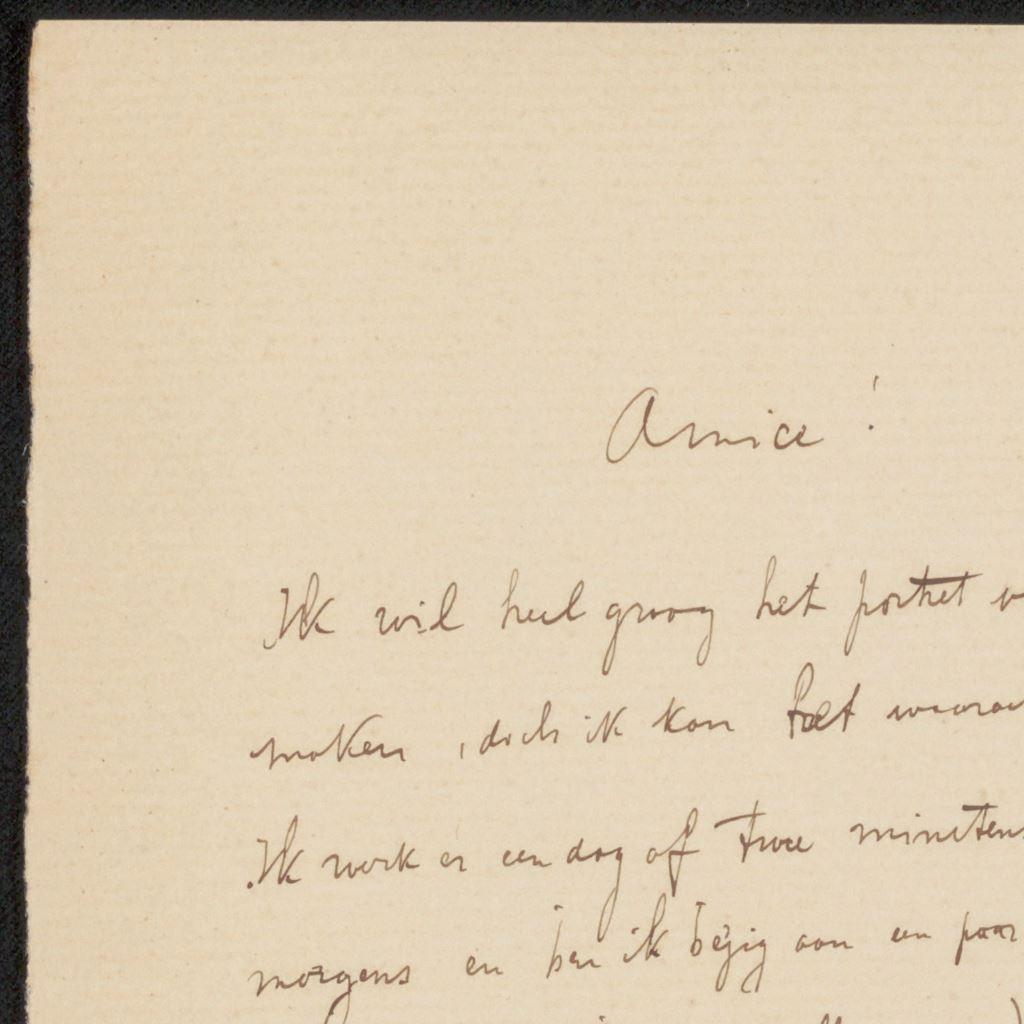 Amice!
Ik wil heel graag het portret v
maken, doch ik kan het
Ik werk er een dag of twee minstens
morgens en ben ik bezig aan een paar